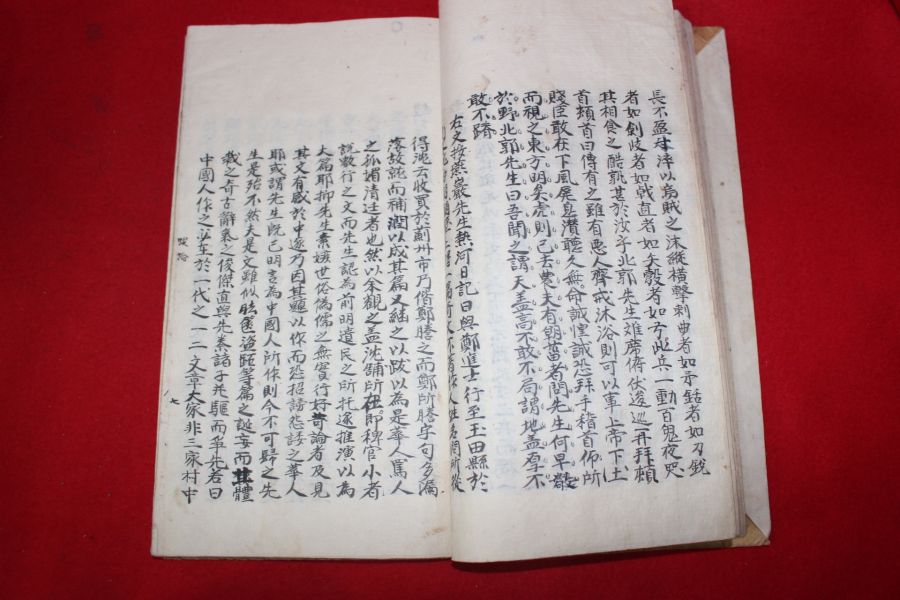 長不盈寸淬以烏賊之沫縱橫擊刺曲者如矛銛者如刀銳
者如劍歧者如戟直者如矢彀者如弓此兵一動百鬼夜哭
其相食之酷孰甚於汝乎北郭先生離席俯伏逡巡再拜頓
首頓首曰傳有之雖有惡人齊戒沐浴則可以事上帝下土
賤臣敢在下風屏息潛聽久無命誠惶誠恐拜手稽首仰而
而視之東方明矣虎則已去農夫有朝菑者問先生何早敬
於野北郭先生曰吾聞之謂天盖高不敢不局謂地盖厚不
敢不蹐
右文按燕巖先生熱河日記曰與鄭進士行至玉田縣於
得沈云收買於薊州市乃偕鄭謄之而鄭所謄字句多漏
落故純而補潤以成其篇又繼之以跋以為是華人罵人
之孤媚清迂者也然以余觀之盖沈鋪所在即稗官小者
說數行之文而先生認為前明遺民之所托遂推演以為
大篇耶抑先生素嫉世俗偽儒之無實行好奇論者及見
其文有感於中遂乃因其題以作而恐招謗怨諉之華人
耶或謂先生旣已明言為中國人所作則今不可歸之先
生是殆不然夫是文雖似胠篋盜跖等篇之誕妄而其體
裁之奇古辭氣之俊傑直與先秦諸子並驅而爭先若曰
中國人作之必在於一代之一二文章大家非三家村中
七